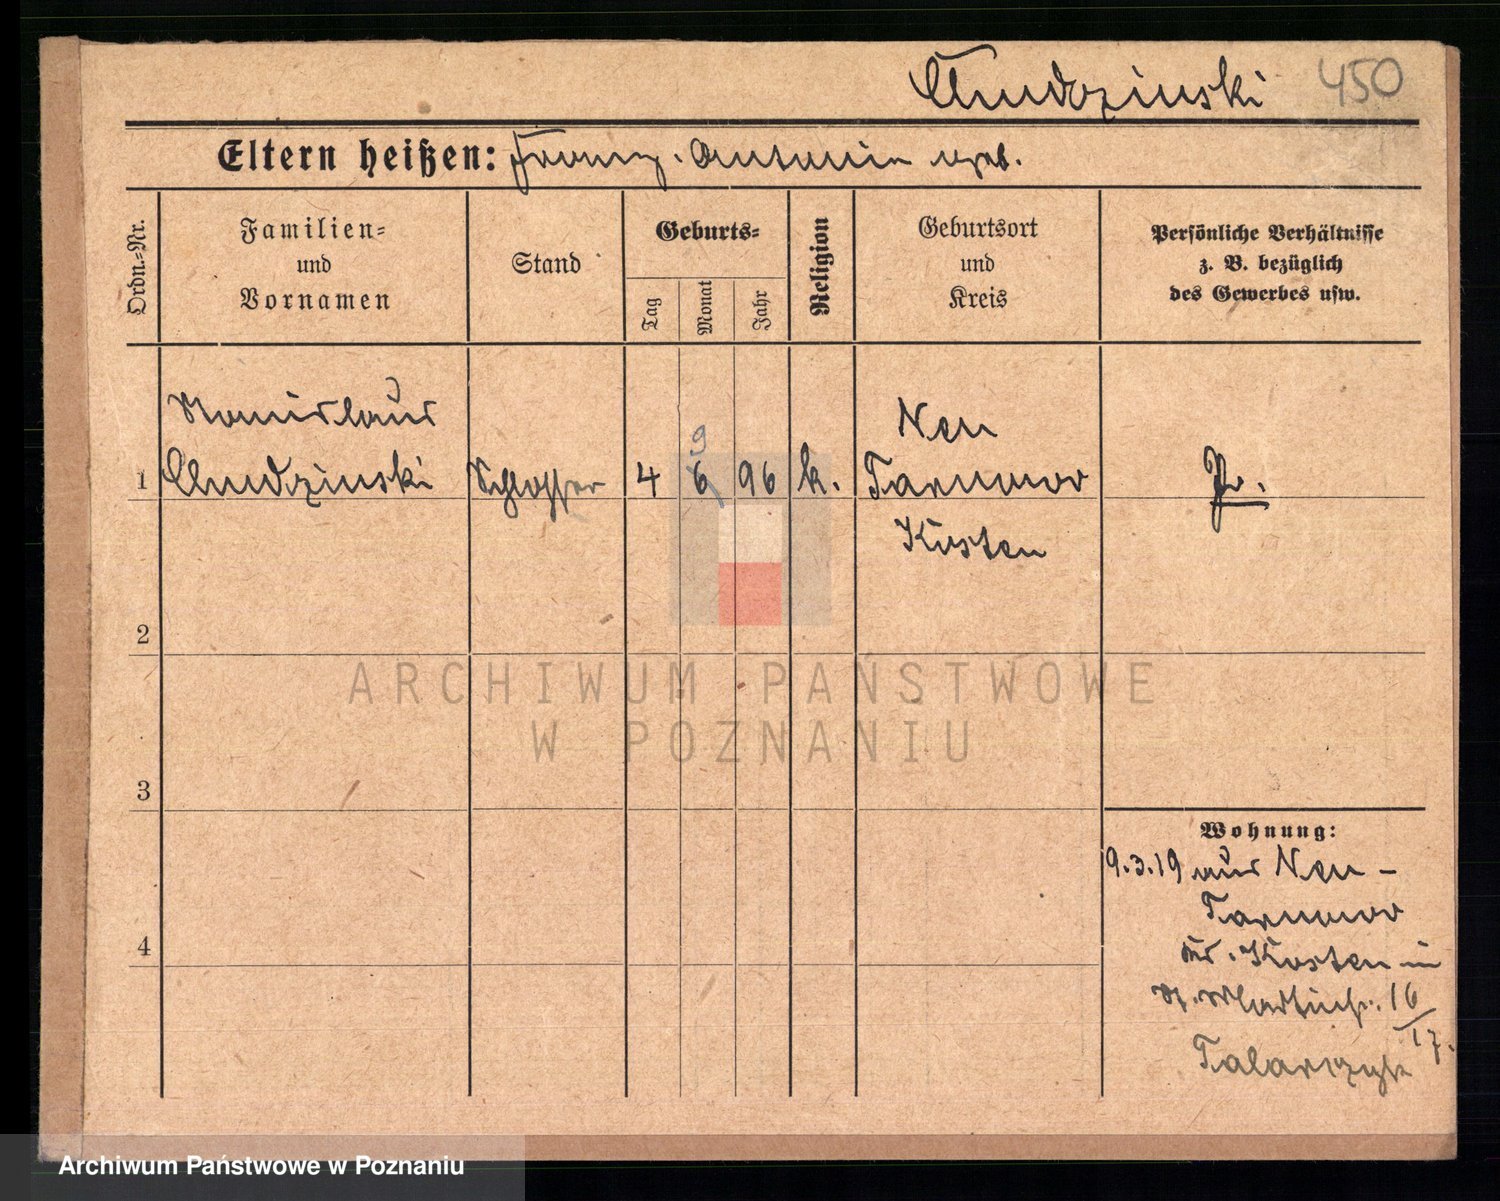 Chudzinski 450
Eltern heißen: Franz. Antonie geb.
Ordn.-Nr.
Familien-
und
Vornamen
Stand
Geburts-
Tag
Monat
Jahr
Religion
Geburtsort
und
Kreis
Persönliche Verhältnisse
z. B. bezüglich
des Gewerbes usw.
Stanislaus
1 Chudzinski Schlosser 4 6 9 96 k.
Neu
Tarnowo
Kosten
Pr.
2
3
4
Wohnung:
9.3.19 aus Neu-
Tarnowo
Kr. Kosten in
St. Martinstr. 16/17.
Talarczyk
ARCHIWUM PAŃSTWOWE
W POZNANIU
Archiwum Państwowe w Poznaniu